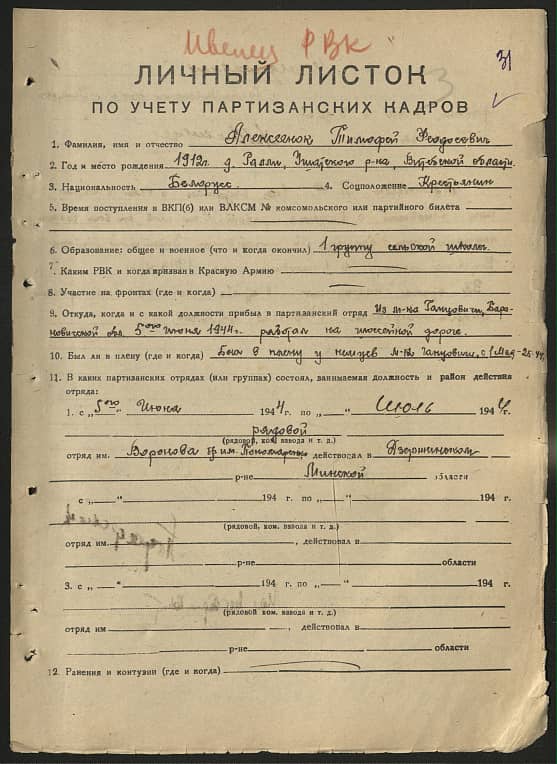 Ивенец РВК
31
ЛИЧНЫЙ ЛИСТОК
ПО УЧЕТУ ПАРТИЗАНСКИХ КАДРОВ
1. Фамилия, имя и отчество Алексеёнок Тимофей Феодосевич
2. Год и место рождения 1912г. д. Ушатского р-на, Витебской области.
3. Национальность Белорусс 4. Соцположение Крестьянин
5. Время поступления в ВКП(б) или ВЛКСМ № комсомольского или партийного билета
6. Образование: общее и военное (что и когда окончил) 1 группу сельской школы
7. Каким РВК и когда призван в Красную Армию
8. Участие на фронтах (где и когда)
9. Откуда, когда и с какой должности прибыл в партизанский отряд Из м-ка Ганцовичи, Бара-
новичской обл. 5ого июня 1944г. работал на шоссейной дороге.
10. Был ли в плену (где и когда) Был в плену у немцев м-ка Ганцовичи, с 1 мая
11. В каких партизанских отрядах (или группах) состоял, занимаемая должность и район действия
отряда:
1. с „5ого“ Июня 1944 г. по „ “ Июль 1944 г.
рядовой
(рядовой, ком. взвода и т. д.)
отряд им. Воронова бр. им. Пономаренко действовал в Дзержинском
р-не Минской области
с „ “ 194 г. по „ “ 194 г.
(рядовой, ком. взвода и т. д.)
отряд им. , действовал в
р-не области
3. с „ “ 194 г. по „ “ 194 г.
(рядовой ком. взвода и т. д.)
отряд им , действовал в
р-не области
12. Ранения и контузии (где и когда)